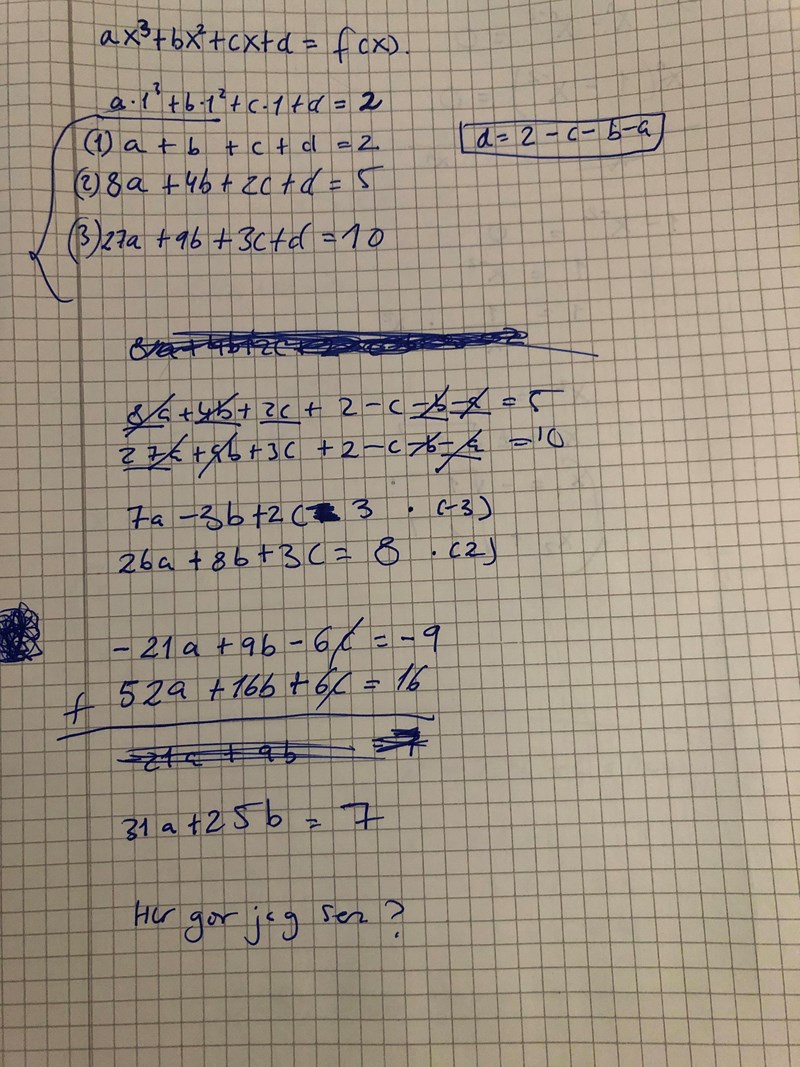 ax³+bx²+cx+d = f(x).
a·1³+b·1²+c·1+d = 2
(1) a + b + c + d = 2
d = 2 - c - b - a
(2) 8a + 4b + 2c + d = 5
(3) 27a + 9b + 3c + d = 10
8a + 4b + 2c + 2 - c - b - a = 5
27a + 9b + 3c + 2 - c - b - a = 10
7a - 3b + 2c 3 · (-3)
26a + 8b + 3c = 8 · (2)
- 21a + 9b - 6c = -9
+ 52a + 16b + 6c = 16
31a + 25b = 7
Hur gör jag sen?